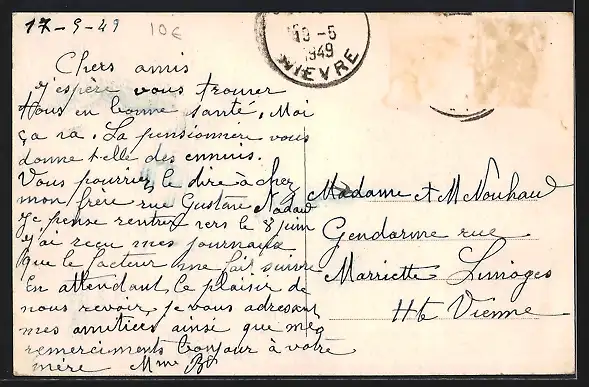 17-5-49
10€
18-5
1949
NIEVRE
Chers amis
j'espère vous trouver
tous en bonne santé, Moi
ça va. La pensionnère vous
donne t-elle des ennuis.
Vous pourriez le dire à chez
mon frère rue Gustave Nadaud
Je pense rentrer vers le 8 juin
j'ai reçu mes journaux
que le facteur me fait suivre
En attendant le plaisir de
nous revoir, je vous adressent
mes amitiées ainsi que mes
remerciments bonjour à votre
mère Mme
Madame et M Nouhaud
Gendarme rue
Marriette Limoges
Hte Vienne